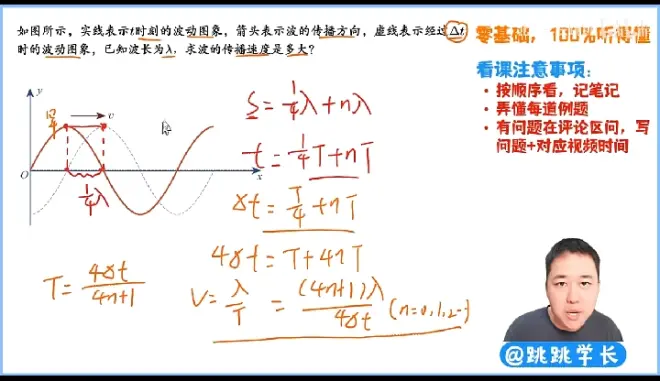 如图所示，实线表示t时刻的波动图象，箭头表示波的传播方向，虚线表示经过Δt
时的波动图象，已知波长为λ，求波的传播速度是多大？
零基础，100%听得懂
看课注意事项：
• 按顺序看，记笔记
• 弄懂每道例题
• 有问题在评论区问，写
问题+对应视频时间
y
v
O
x
1/4 λ
S = 1/4 λ + nλ
t = 1/4 T + nT
Δt = T/4 + nT
4Δt = T + 4nT
T = 4Δt/(4n+1)
V = λ/T = (4n+1)λ/4Δt (n=0,1,2…)
@跳跳学长